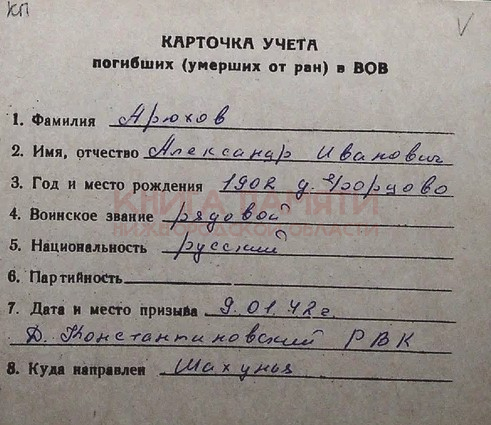 КП
V
КАРТОЧКА УЧЕТА
погибших (умерших от ран) в ВОВ
1. Фамилия Арюхов
2. Имя, отчество Александр Иванович
3. Год и место рождения 1902 д.
КНИГА ПАМЯТИ
4. Воинское звание рядовой
НИЖЕГОРОДСКОЙ ОБЛАСТИ
5. Национальность русский
6. Партийность
7. Дата и место призыва 9.01.42 г.
Д. Константиновский РВК
8. Куда направлен Шахунья